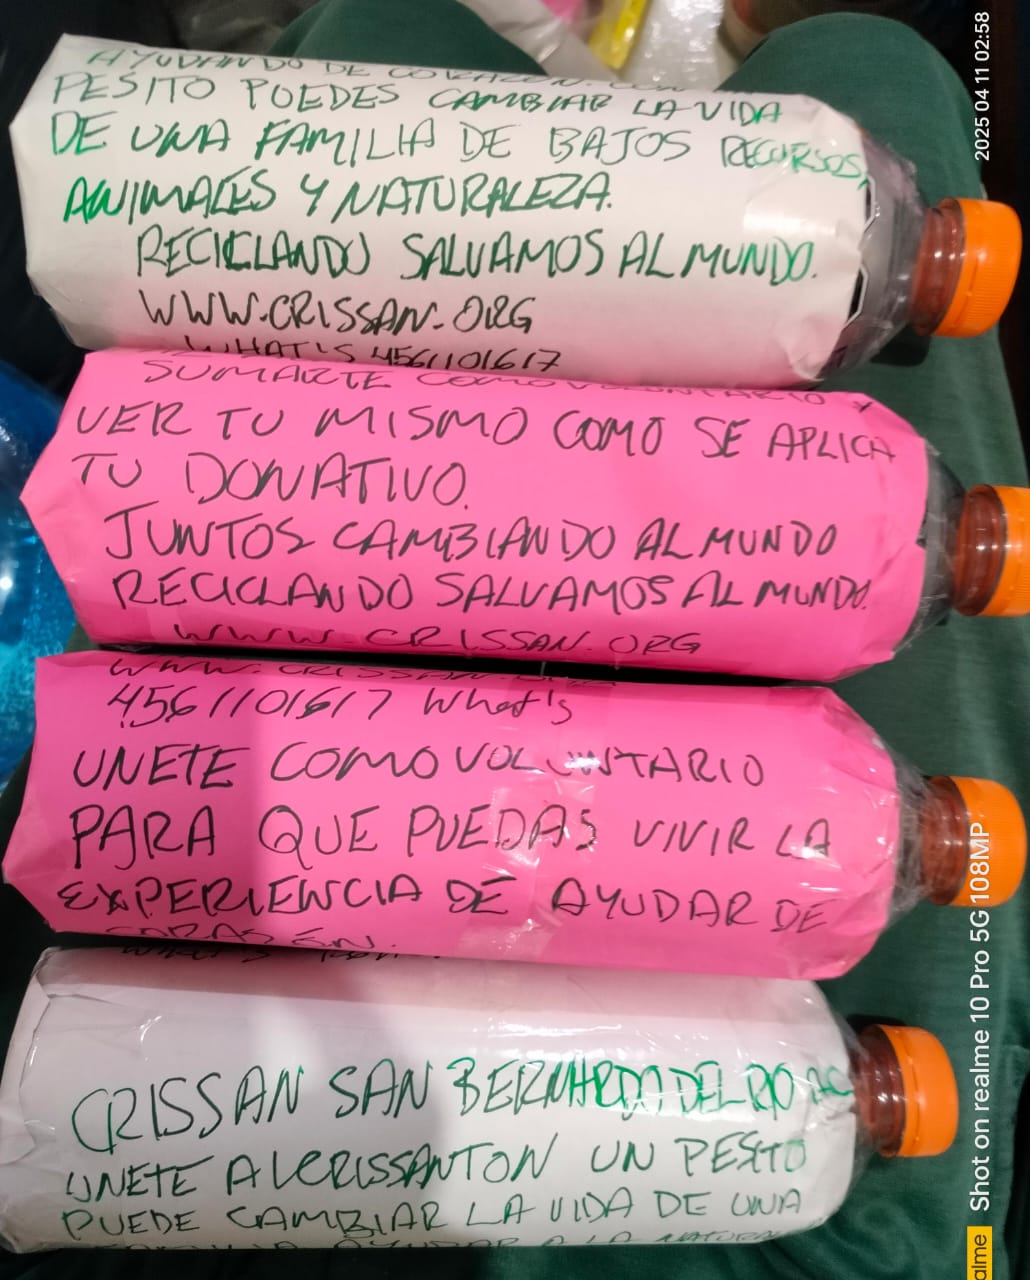 AYUDANDO DE CORAZON. CON UN
PESITO PUEDES CAMBIAR LA VIDA
DE UNA FAMILIA DE BAJOS RECURSOS,
ANIMALES Y NATURALEZA.
RECICLANDO SALVAMOS AL MUNDO.
WWW.CRISSAN.ORG
WHAT'S 4561101617
SUMARTE COMO VOLUNTARIO Y
VER TU MISMO COMO SE APLICA
TU DONATIVO.
JUNTOS CAMBIANDO AL MUNDO
RECICLANDO SALVAMOS AL MUNDO.
WWW.CRISSAN.ORG
WWW.CRISSAN.ORG
4561101617 What's
UNETE COMO VOLUNTARIO
PARA QUE PUEDAS VIVIR LA
EXPERIENCIA DE AYUDAR DE
CORAZÓN.
CRISSAN SAN BERNARDO DEL RIO AC
UNETE AL CRISSANTON UN PESITO
PUEDE CAMBIAR LA VIDA DE UNA
FAMILIA AYUDAR A LA
2025 04 11 02:58
Shot on realme 10 Pro 5G 108MP
alme